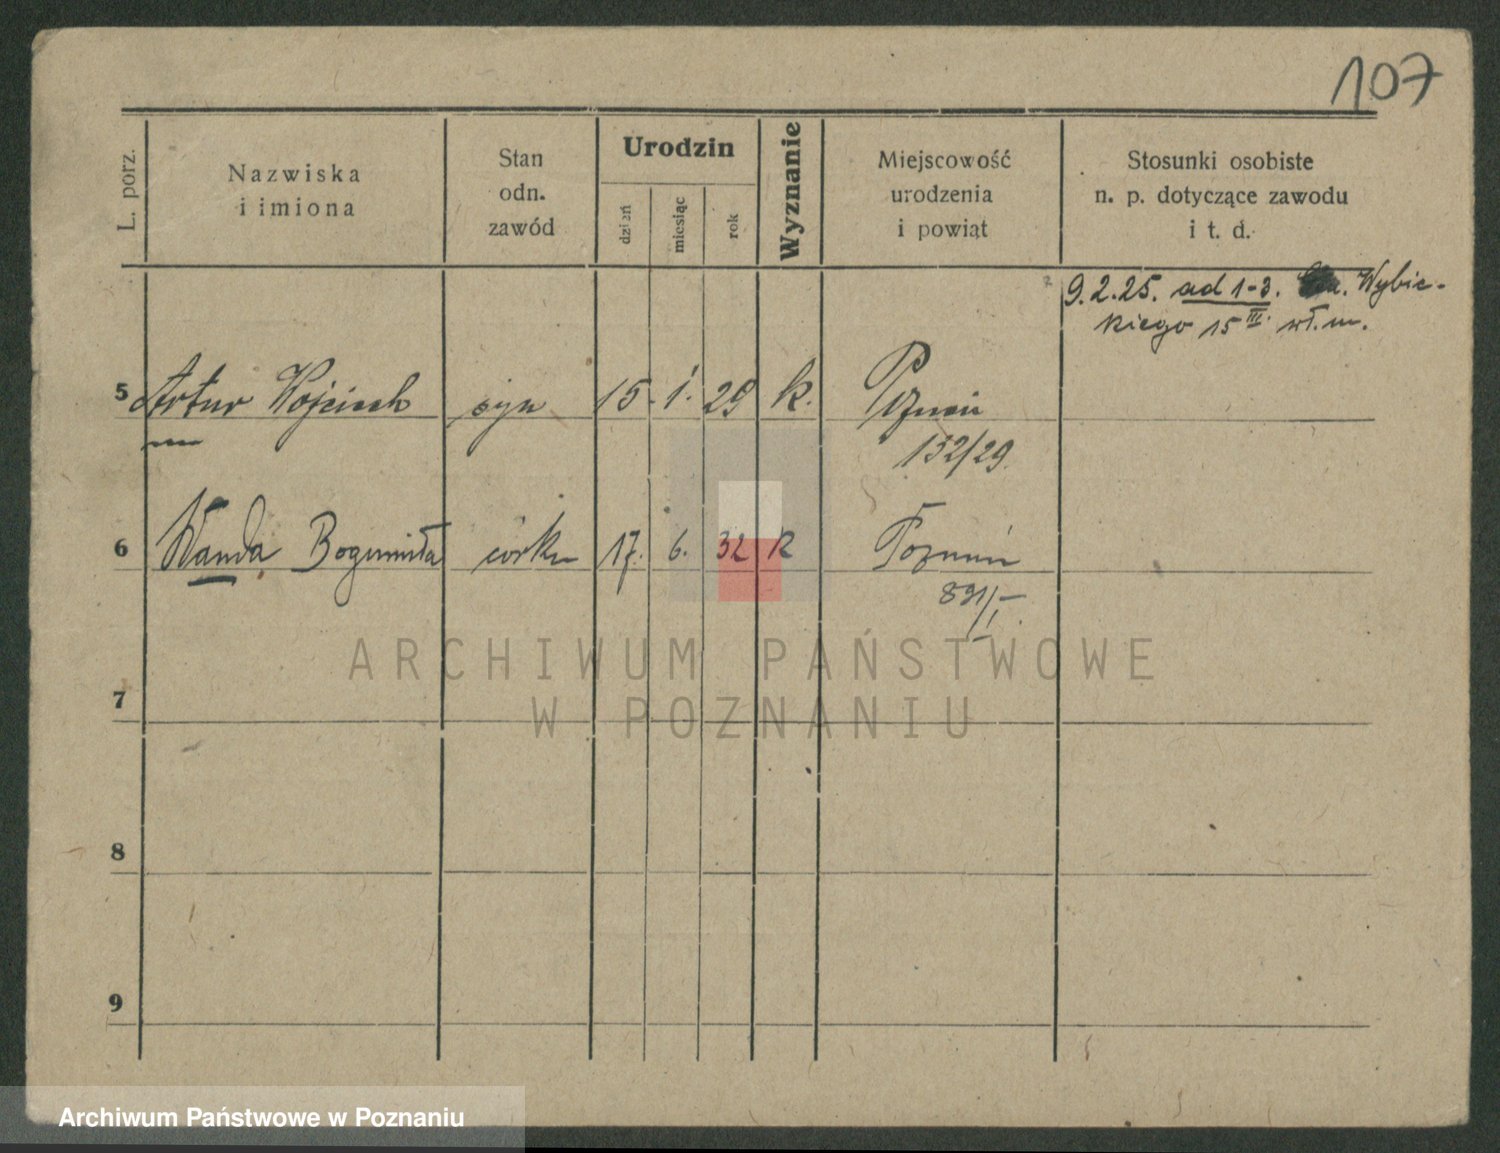 107
L. porz.
Nazwiska
i imiona
Stan
odn.
zawód
Urodzin
dzień
miesiąc
rok
Wyznanie
Miejscowość
urodzenia
i powiąt
Stosunki osobiste
n. p. dotyczące zawodu
i t. d.
9.2.25. ad 1-3. Wybic-
kiego 15 III. wł. m.
5 Artur Wojciech syn 15. 1. 29 k. Poznań
132/29.
6 Wanda Bogumiła córka 17. 6. 32 k Poznań
831/I.
7
8
9
ARCHIWUM PAŃSTWOWE
W POZNANIU
Archiwum Państwowe w Poznaniu